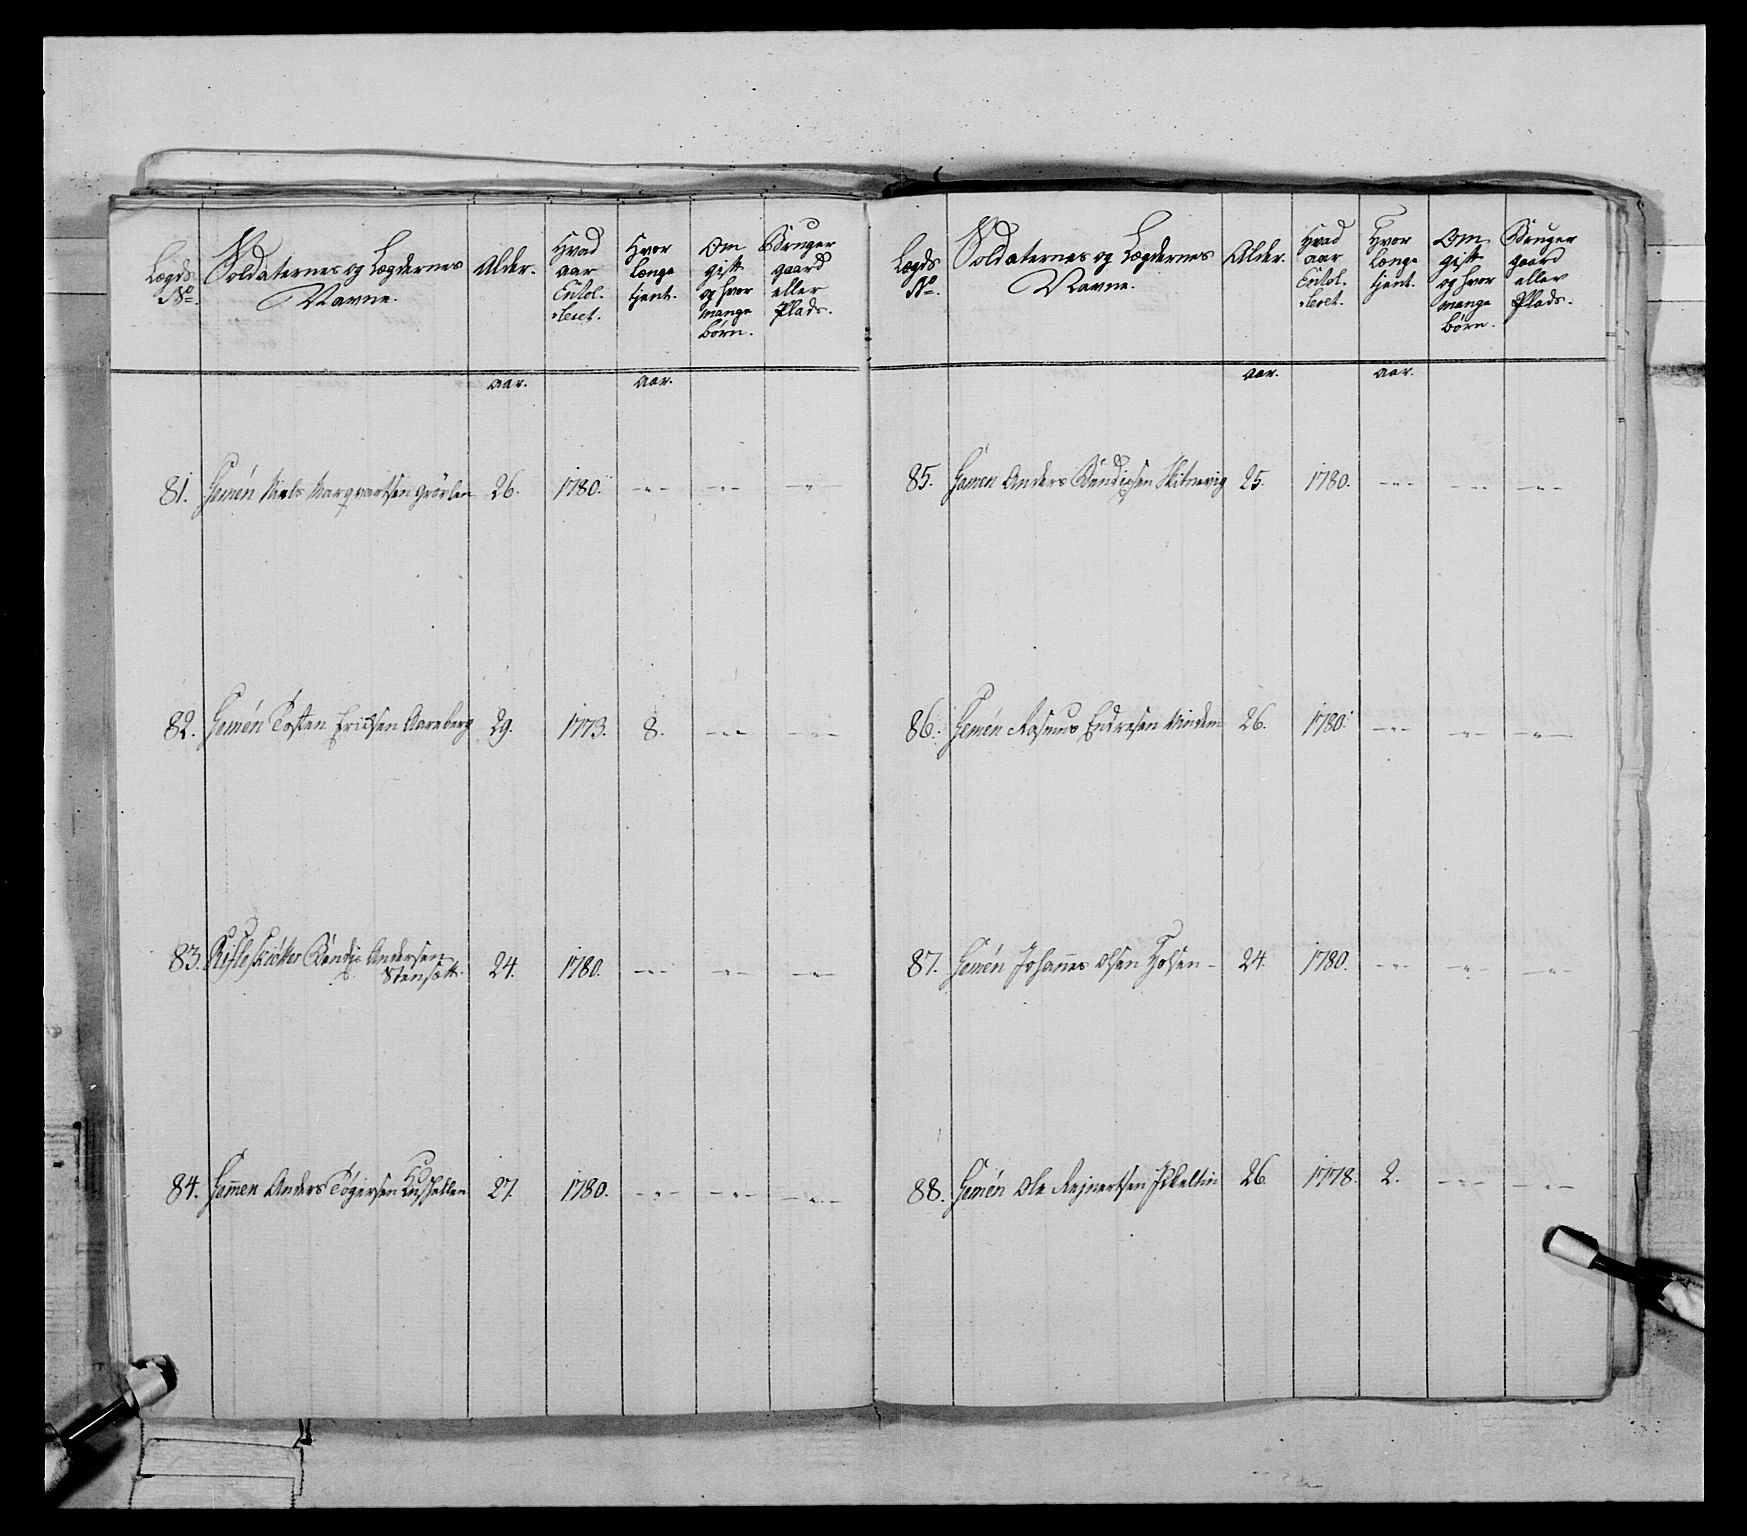 Lægds No.
Soldaternes og Lægdernes Navne.
Alder.
Hvad aar Enrol-leret.
Hvor længe tjent.
Om gift og hvor mange børn.
Bruger gaard eller Plads.
aar.
aar.
81. Gemēn Niels Marqvartsen Grörlen 26. 1780. -"- -"- -"-
82. Gemēn Tosten Erichsen Aareberg 29. 1773. 8. -"- -"-
83. Rifleskiötter Bendix Andersen
Stensæth. 24. 1780. -"- -"- -"-
84. Gam̄en Anders Tögersen 27. 1780. -"- -"- -"-
Lægds No.
Soldaternes og Lægdernes Navne.
Alder.
Hvad aar Enrol-leret.
Hvor længe tjent.
Om gift og hvor mange børn.
Bruger gaard eller Plads.
aar.
aar.
85. Gamen Anders Bendixsen 25. 1780. -"- -"- -"-
86. Gemēn Rasmus Endresen Vindem 26. 1780. -"- -"- -"-
87. Gemēn Johan̄es Olsen Holsen - 24. 1780. -"- -"- -"-
88. Gemēn Ole Rejnertsen 26 1778. 2. -"- -"-